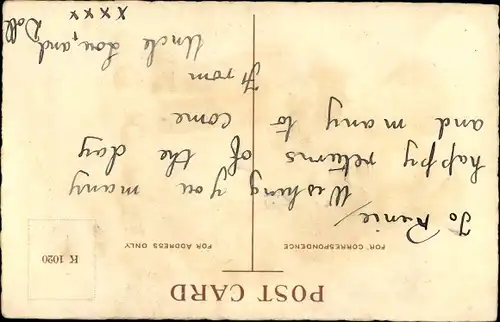 POST CARD
FOR CORRESPONDENCE
FOR ADDRESS ONLY
K 1020
To Renie/
Wishing you many
happy returns of the day
and many to come
From
Uncle Lou, and Doll
x x x x